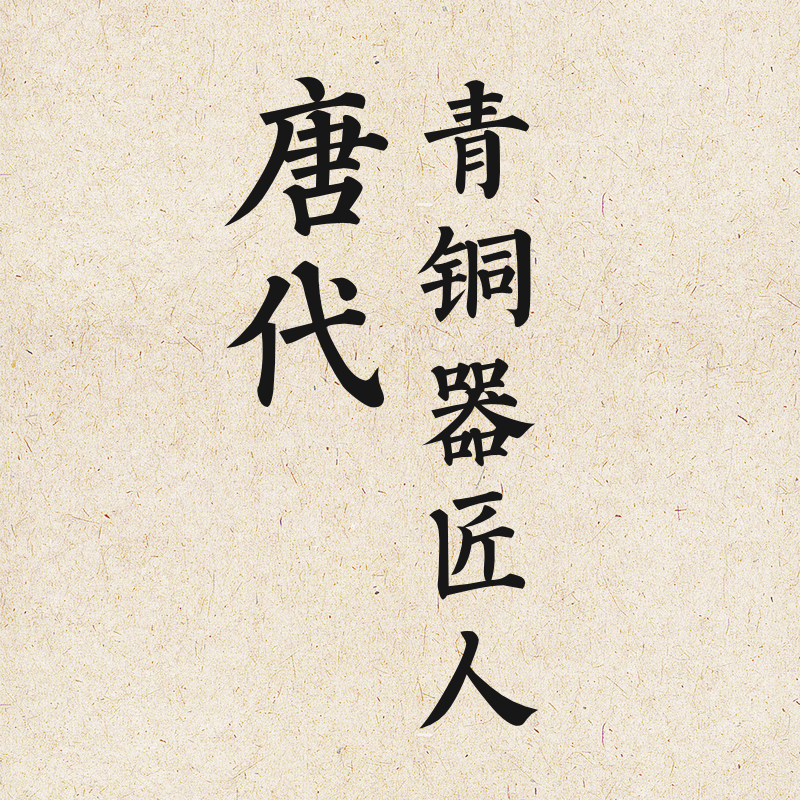 唐代
青铜器匠人